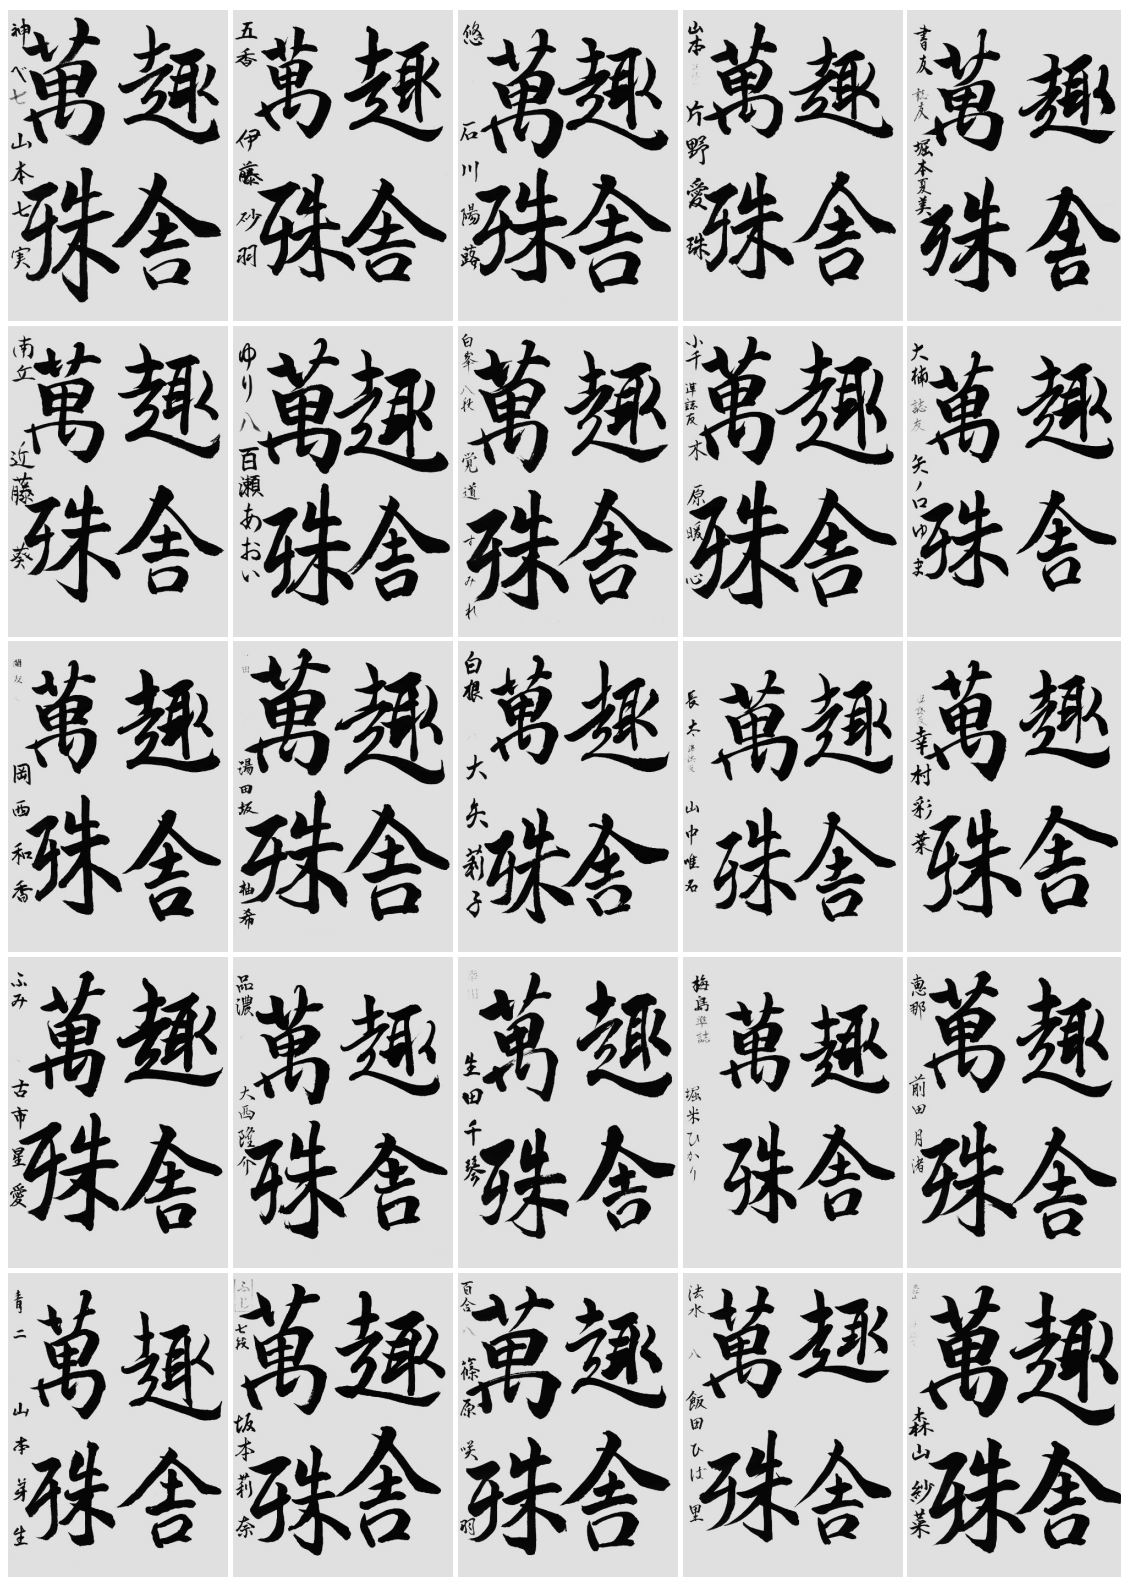 趣舎
萬殊
神べ七 山本七実
趣舎
萬殊
五香 伊藤砂羽
趣舎
萬殊
悠 石川陽蕗
趣舎
萬殊
山本 片野愛珠
趣舎
萬殊
書友 誌友 堀本夏美
趣舎
萬殊
南丘 近藤葵
趣舎
萬殊
ゆり八 百瀬あおい
趣舎
萬殊
白峯 八段 覚道すみれ
趣舎
萬殊
小千 準誌友 木原暖心
趣舎
萬殊
大楠 誌友 矢ノ口ゆま
趣舎
萬殊
蘭友 岡西和香
趣舎
萬殊
田 湯田坂柚希
趣舎
萬殊
白根 大矢莉子
趣舎
萬殊
長太 準誌友 山中唯石
趣舎
萬殊
準誌友 幸村彩葉
趣舎
萬殊
ふみ 古市星愛
趣舎
萬殊
品濃 大西隆介
趣舎
萬殊
幸田 生田千琴
趣舎
萬殊
梅島 準誌 堀米ひかり
趣舎
萬殊
恵那 前田月渚
趣舎
萬殊
青二 山本芽生
趣舎
萬殊
ふじ 七段 坂本莉奈
趣舎
萬殊
百合八 篠原咲羽
趣舎
萬殊
法水 八 飯田ひば里
趣舎
萬殊
森山紗菜